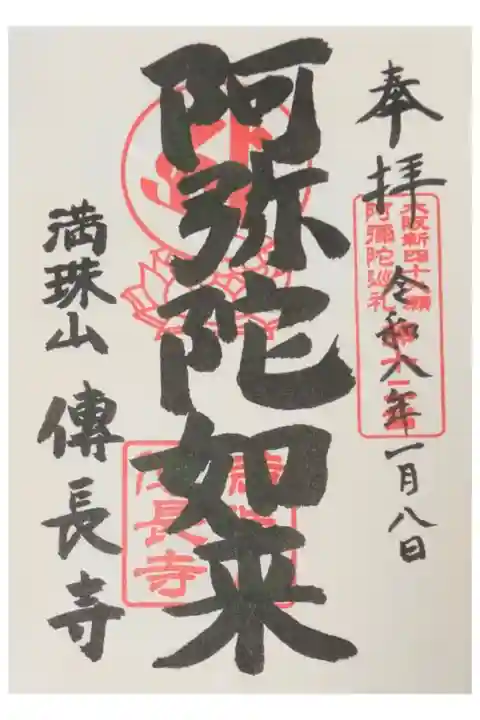 奉拝
令和八年一月八日
大阪新四十八願
阿彌陀巡礼
阿弥陀如来
満珠山 傳長寺
長寺